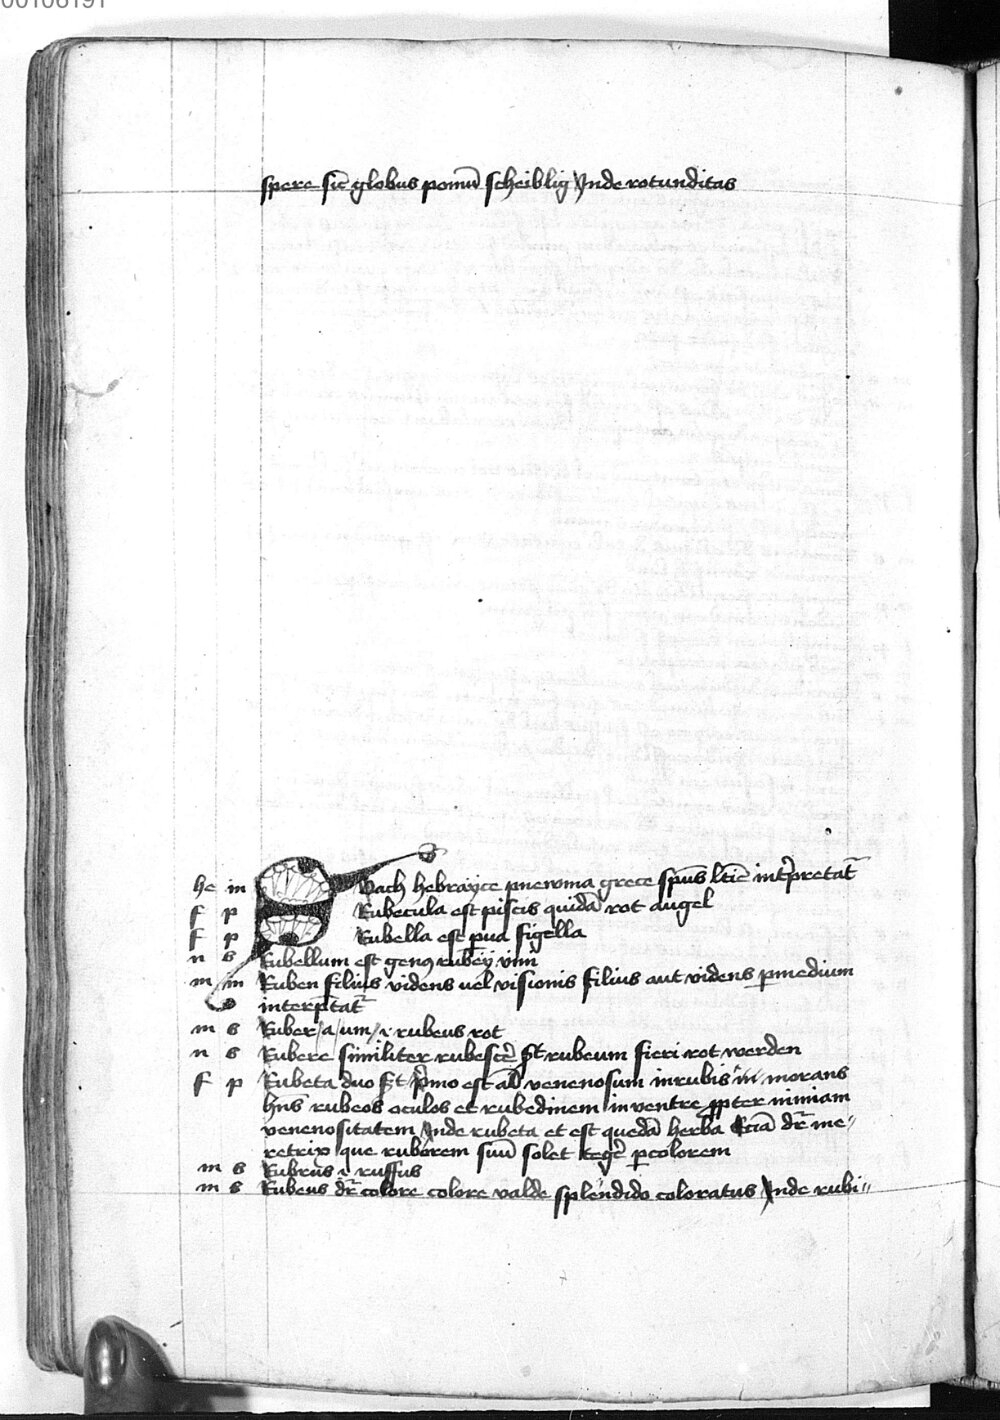 00106191
spere sic̄ globus pomū scheiblig Inde rotunditas
he in Ruach hebrayce pnewma grece spūs lt̄ie int̄pretat̄
f p Rubecula est piscis quidā rot augel
f p Rubella est pua figella
n s Rubellum est genꝰ rubey vini
m in Ruben filius videns uel visionis filius aut videns p̲medium
interp̄tat̄
m s Ruber /a/ um/ i rubeus rot
n s Rubere similiter rubesce᷑ st rubeum fieri rot werden
f p Rubeta duo st p̄mo est aīal venenosum in rubis morans
hn̄s rubeos oculos et rubedinem in ventre ꝓpter nimiam
venenositatem Inde rubeta et est quedā herba Eciā dr̄ me〃
retrix que ruborem suū solet tege᷑ p̲ colorem
m s Rubrus i ruffus
m s Rubeus dr̄ colore colore valde splendido coloratus Inde rubi〃